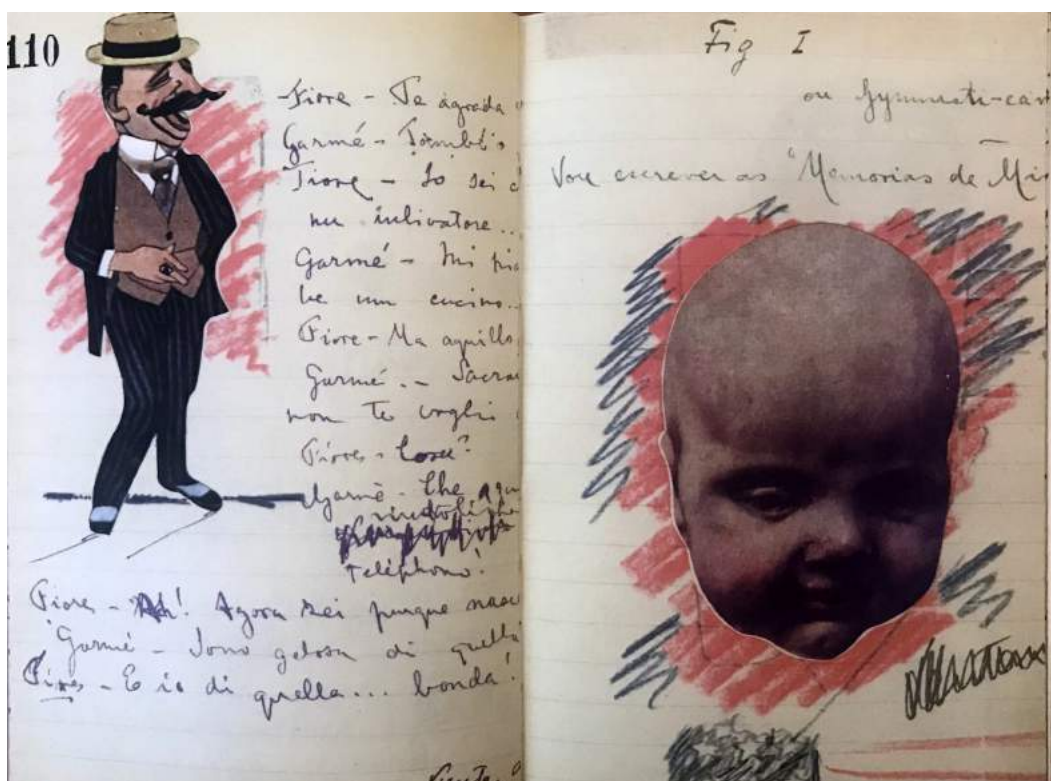 110
Fiore - Te agrada
Garmé - També
Fiore - Io sei
nu
Garmé - Mi
be um cucino..
Fiore - Ma aquillo
Garmé. - Sacra
non te voglio
Fiore - Cose?
Garmé - Che
Teléphono!
Fiore - Ah! Agora sei purque nasc
Garmé - Sono gelosa di quella
Fiore - E io di quella... bonda!
Fig I
ou Gymnasti-can
Vou escrever as "Memorias de Mi